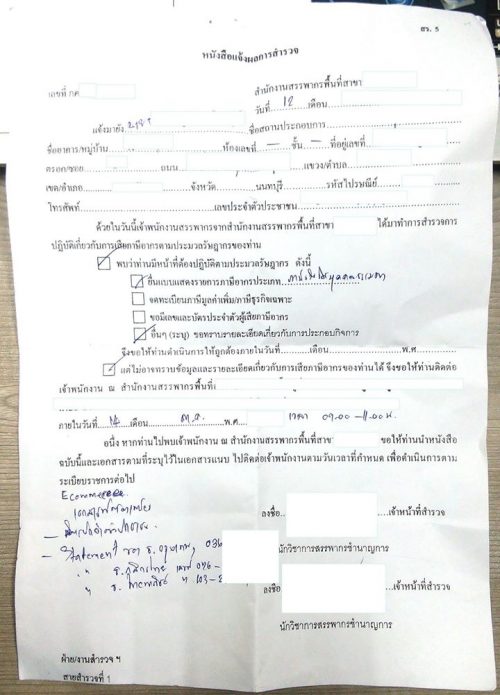 สร. 5
หนังสือแจ้งผลการสำรวจ
เลขที่ กค
สำนักงานสรรพากรพื้นที่สาขา
วันที่ 12 เดือน
แจ้งมายัง ชื่อสถานประกอบการ
ชื่ออาคาร/หมู่บ้าน ห้องเลขที่ — ชั้น — ที่อยู่เลขที่
ตรอก/ซอย ถนน แขวง/ตำบล
เขต/อำเภอ จังหวัด นนทบุรี รหัสไปรษณีย์
โทรศัพท์ เลขประจำตัวประชาชน
ด้วยในวันนี้เจ้าพนักงานสรรพากรจากสำนักงานสรรพากรพื้นที่สาขา ได้มาทำการสำรวจการ
ปฏิบัติเกี่ยวกับการเสียภาษีอากรตามประมวลรัษฎากรของท่าน
พบว่าท่านมีหน้าที่ต้องปฏิบัติตามประมวลรัษฎากร ดังนี้
ยื่นแบบแสดงรายการภาษีอากรประเภท ภาษีเงินได้บุคคลธรรมดา
จดทะเบียนภาษีมูลค่าเพิ่ม/ภาษีธุรกิจเฉพาะ
ขอมีเลขและบัตรประจำตัวผู้เสียภาษีอากร
อื่นๆ (ระบุ) ขอทราบรายละเอียดเกี่ยวกับการประกอบกิจการ
จึงขอให้ท่านดำเนินการให้ถูกต้องภายในวันที่ เดือน พ.ศ.
แต่ไม่อาจทราบข้อมูลและรายละเอียดเกี่ยวกับการเสียภาษีอากรของท่านได้ จึงขอให้ท่านติดต่อ
เจ้าพนักงาน ณ สำนักงานสรรพากรพื้นที่
ภายในวันที่ เดือน ต.ค. พ.ศ. เวลา 09.00 -11.00 น.
อนึ่ง หากท่านไปพบเจ้าพนักงาน ณ สำนักงานสรรพากรพื้นที่สาขา ขอให้ท่านนำหนังสือ
ฉบับนี้และเอกสารตามที่ระบุไว้ในเอกสารแนบ ไปติดต่อเจ้าพนักงานตามวันเวลาที่กำหนด เพื่อดำเนินการตาม
ระเบียบราชการต่อไป
Ecommerce
ลงชื่อ เจ้าหน้าที่สำรวจ
นักวิชาการสรรพากรชำนาญการ
— Statement ของ ธ. กรุงเทพ 036
" ธ. กสิกรไทย เลขที่ 046-
" ธ. ไทยพาณิชย์ " 103-
ลงชื่อ เจ้าหน้าที่สำรวจ
นักวิชาการสรรพากรชำนาญการ
ฝ่าย/งานสำรวจ ฯ
สายสำรวจที่ 1